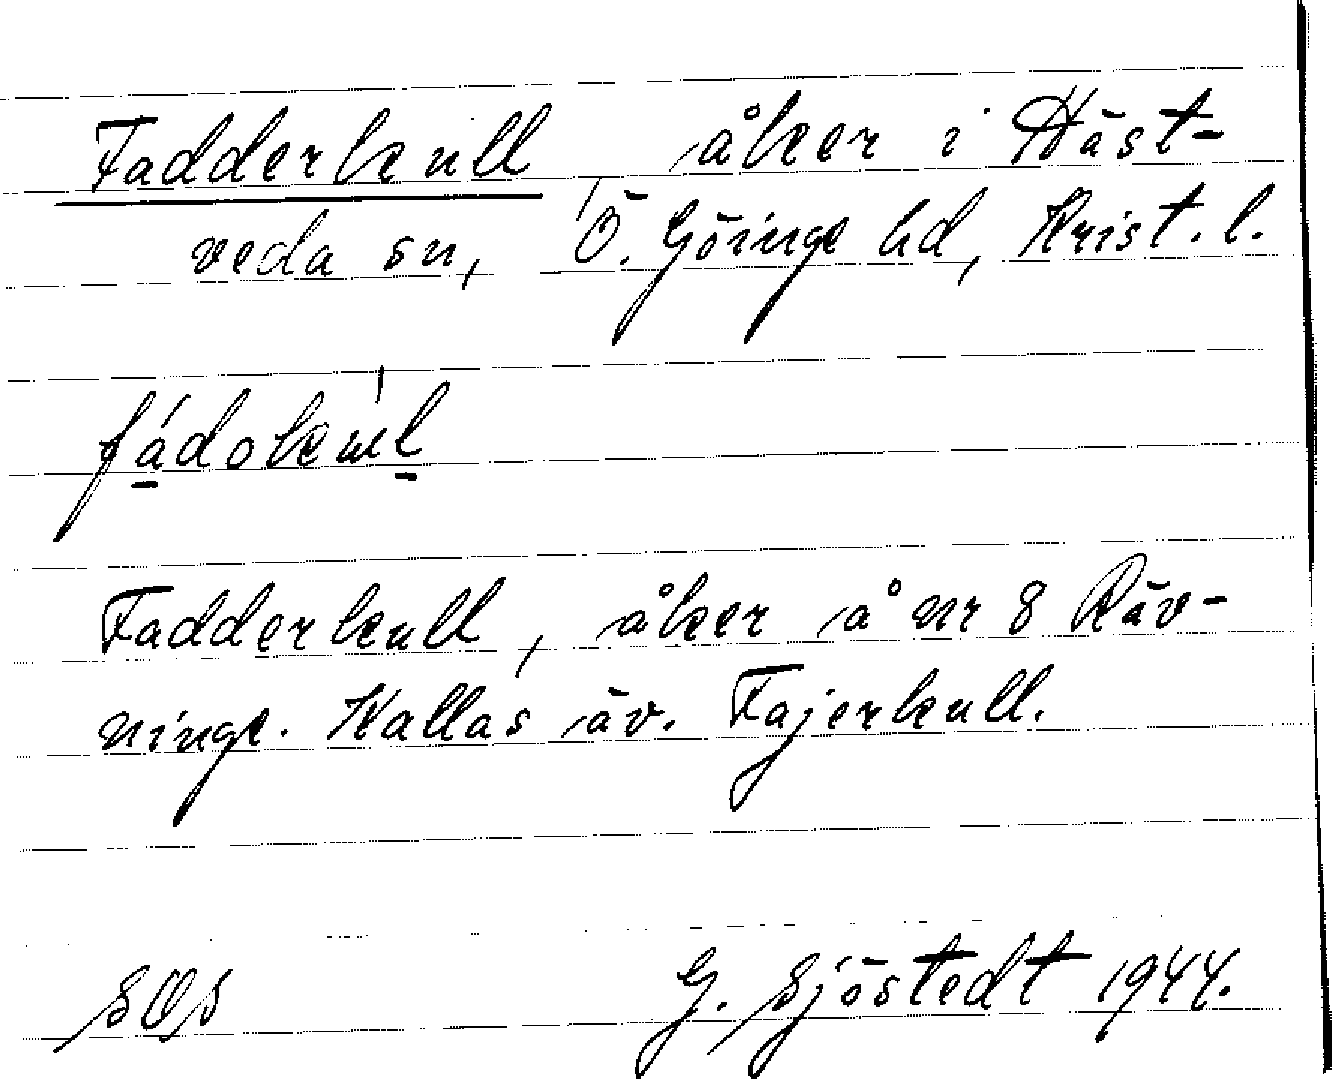 Fadderkull åker i Häst-
veda sn, Ö. Göinge hd, Krist. l.
fadokul
Fadderkull, åker å nr 8 Räv-
ninge. Kallas äv. Fajerkull.
SOS G. Sjöstedt 1944.